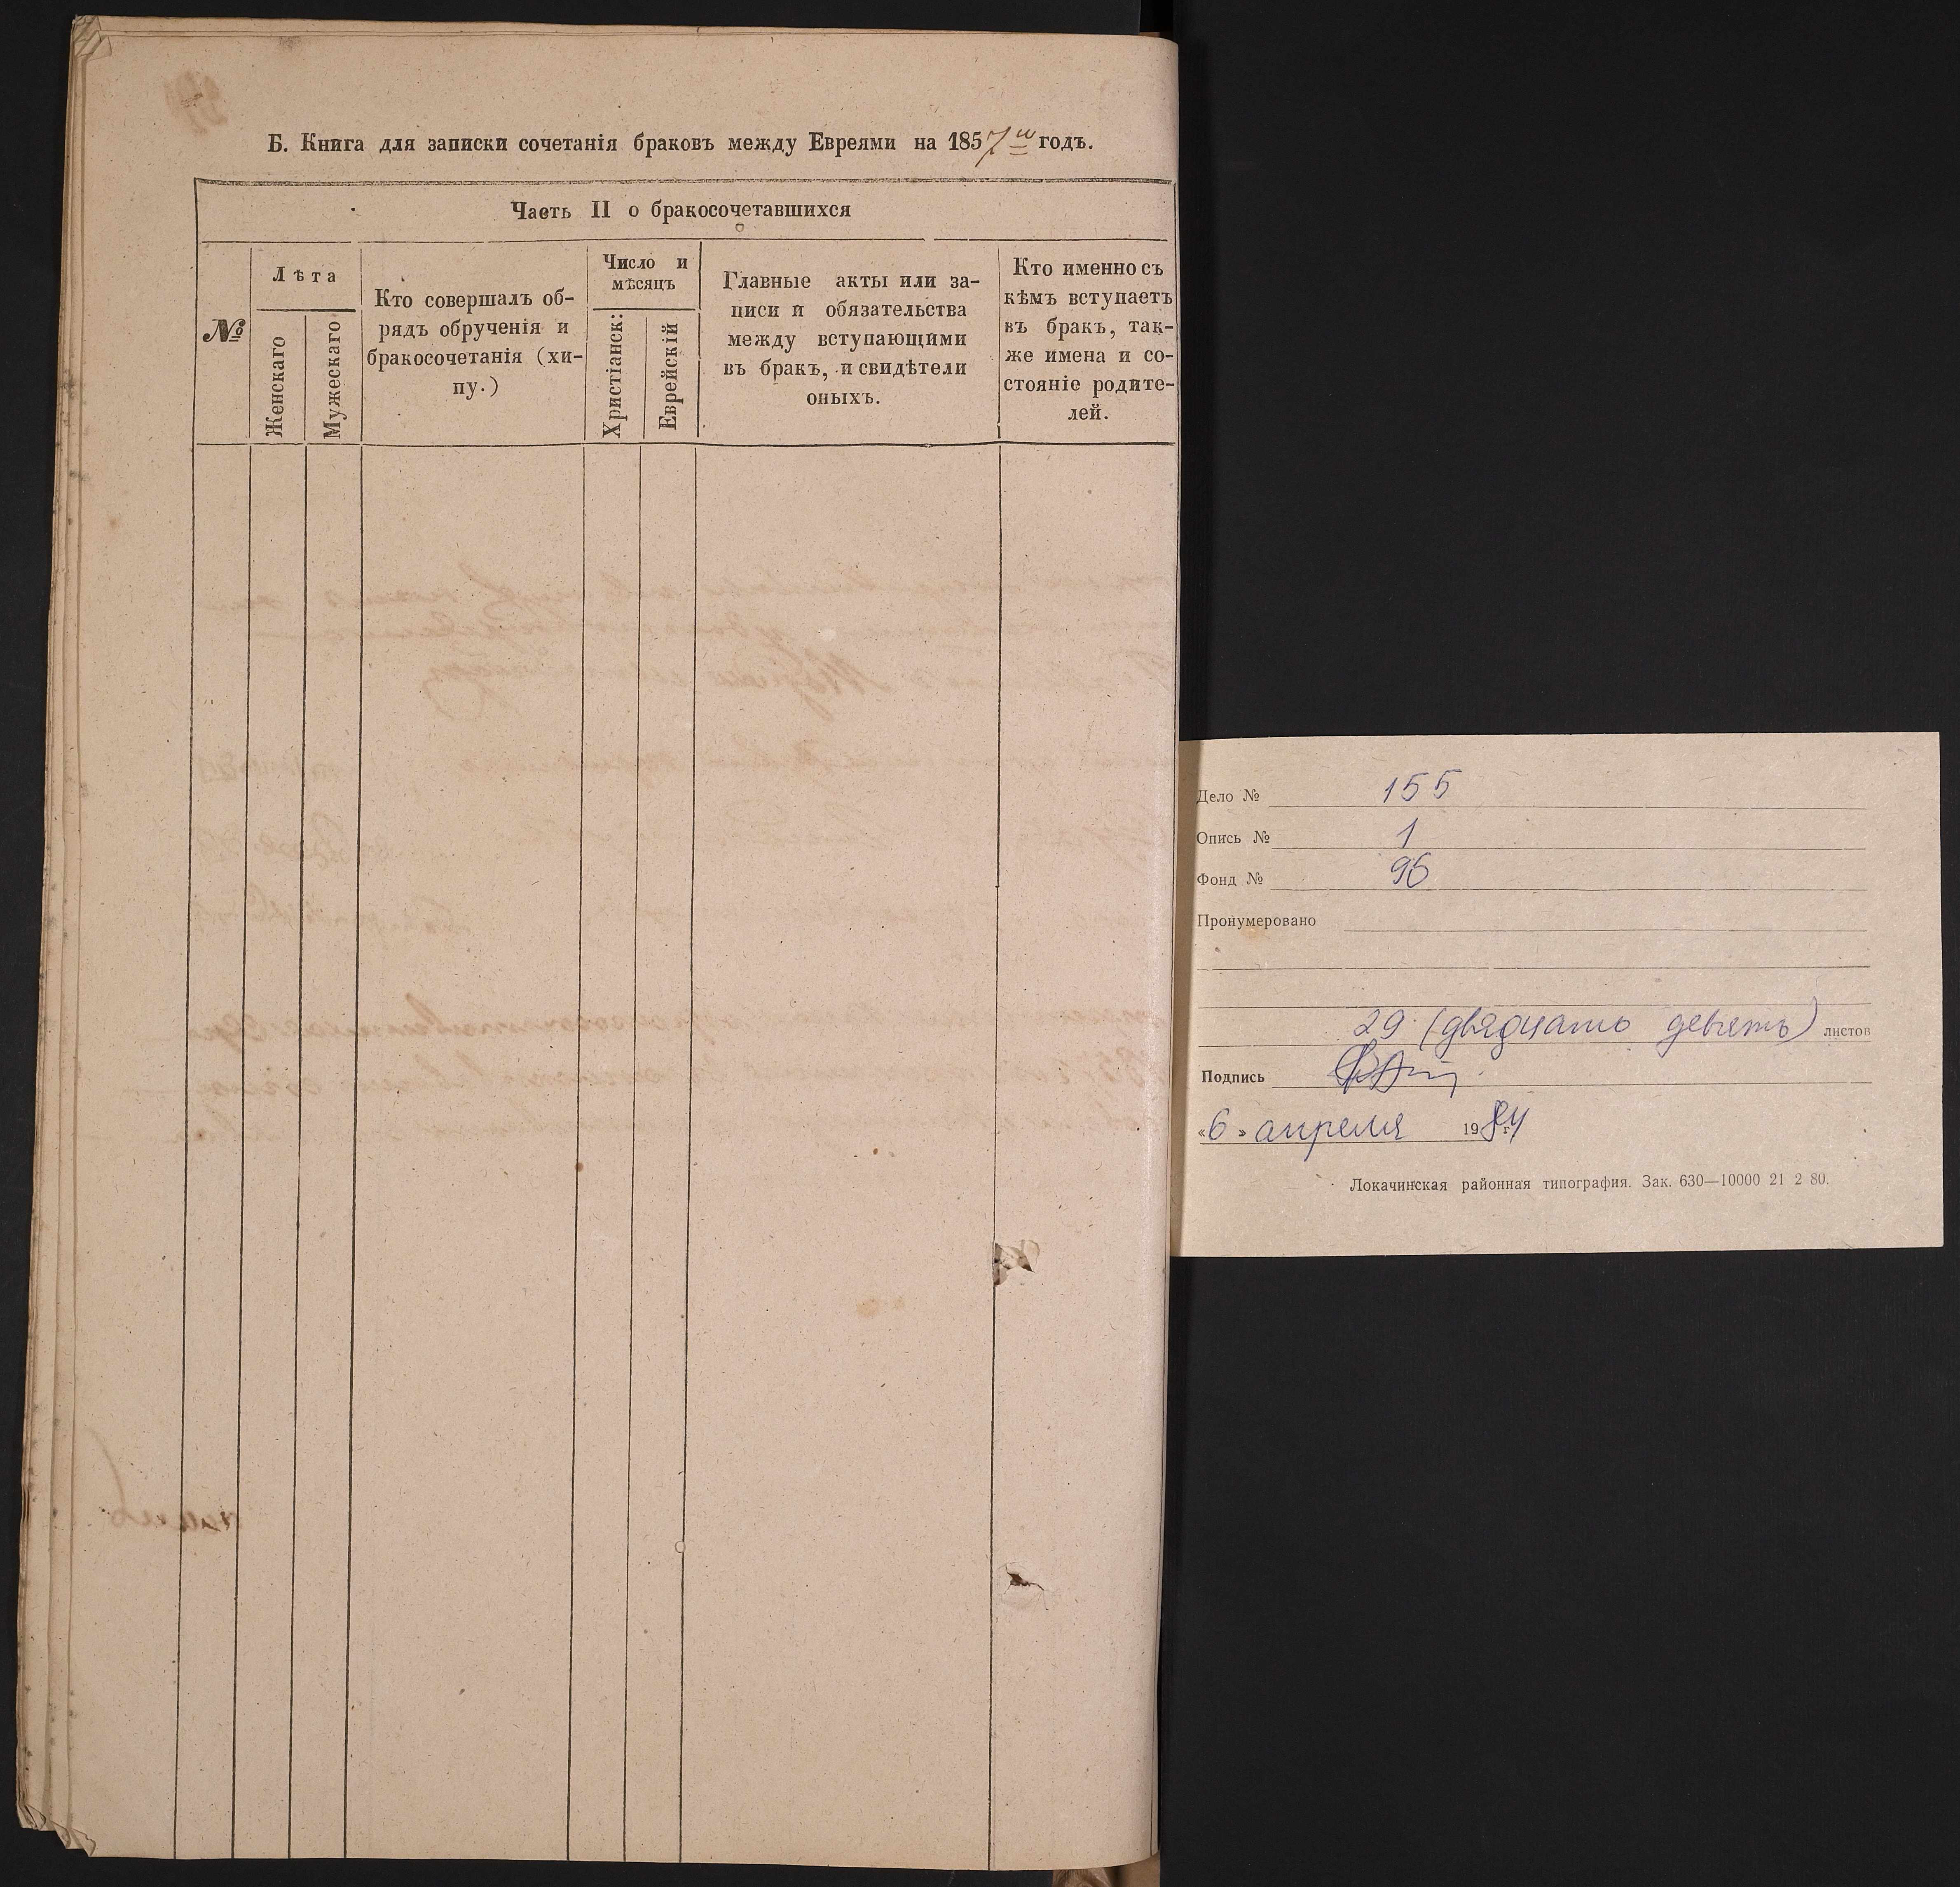 Б. Книга для записки сочетанія браковъ между Евреями на 1857й годъ.
Часть II о бракосочетавшихся
№
Лѣта
Женскаго
Мужескаго
Кто совершалъ об-
рядъ обрученія и
бракосочетанія (хи-
пу.)
Число и
мѣсяцъ
Христіанск:
Еврейскій
Главные акты или за-
писи и обязательства
между вступающими
въ бракъ, и свидѣтели
оныхъ.
Кто именно съ
кѣмъ вступаетъ
въ бракъ, так-
же имена и со-
стояніе родите-
лей.
Дело № 155
Опись № 1
Фонд № 95
Пронумеровано
29 (двадцать девять) листов
Подпись
«6» апреля 1984 г.
Локачинская районная типография. Зак. 630—10000 21 2 80.